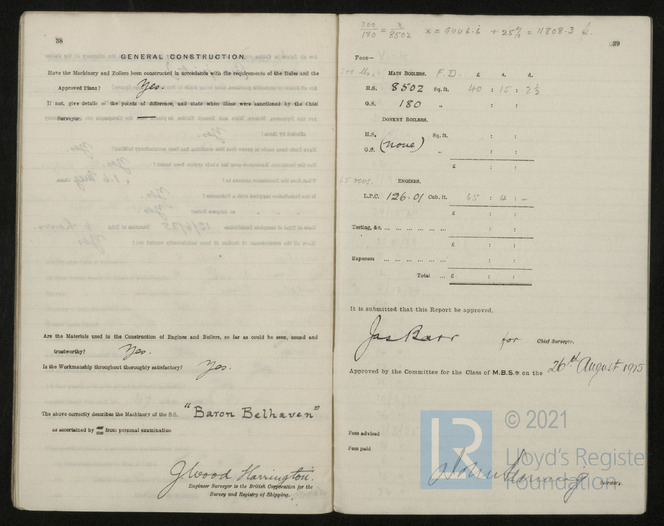 38
GENERAL CONSTRUCTION.
Have the Machinery and Boilers been constructed in accordance with the requirements of the Rules and the
Approved Plans? Yes.
If not, give details of the points of difference, and state when these were sanctioned by the Chief
Surveyor. —
Are the Materials used in the Construction of Engines and Boilers, so far as could be seen, sound and
trustworthy? Yes.
Is the Workmanship throughout thoroughly satisfactory? Yes.
The above correctly describes the Machinery of the S.S. "Baron Belhaven"
as ascertained by from personal examination
J Wood Harrington.
Engineer Surveyor to the British Corporation for the
Survey and Registry of Shipping.
39
200/180 = x/8502 + 25% = 11808.3
Fees—
MAIN BOILERS. F.D. £ s. d.
H.S. 8502 Sq. ft. 40 : 15 :
G.S. 180 "
DONKEY BOILERS.
H.S. Sq. ft.
G.S. (none) "
£ : :
ENGINES.
L.P.C. 126.01 Cub. ft. : : -
£ : :
Testing, &c. ... : :
£ : :
Expenses ... : :
Total ... £ : :
It is submitted that this Report be approved,
Jas Barr for Chief Surveyor.
Approved by the Committee for the Class of M.B.S.* on the 26th August 1925
© 2021
LR
Lloyd's Register
Foundation
Fees advised
Fees paid
Secretary.